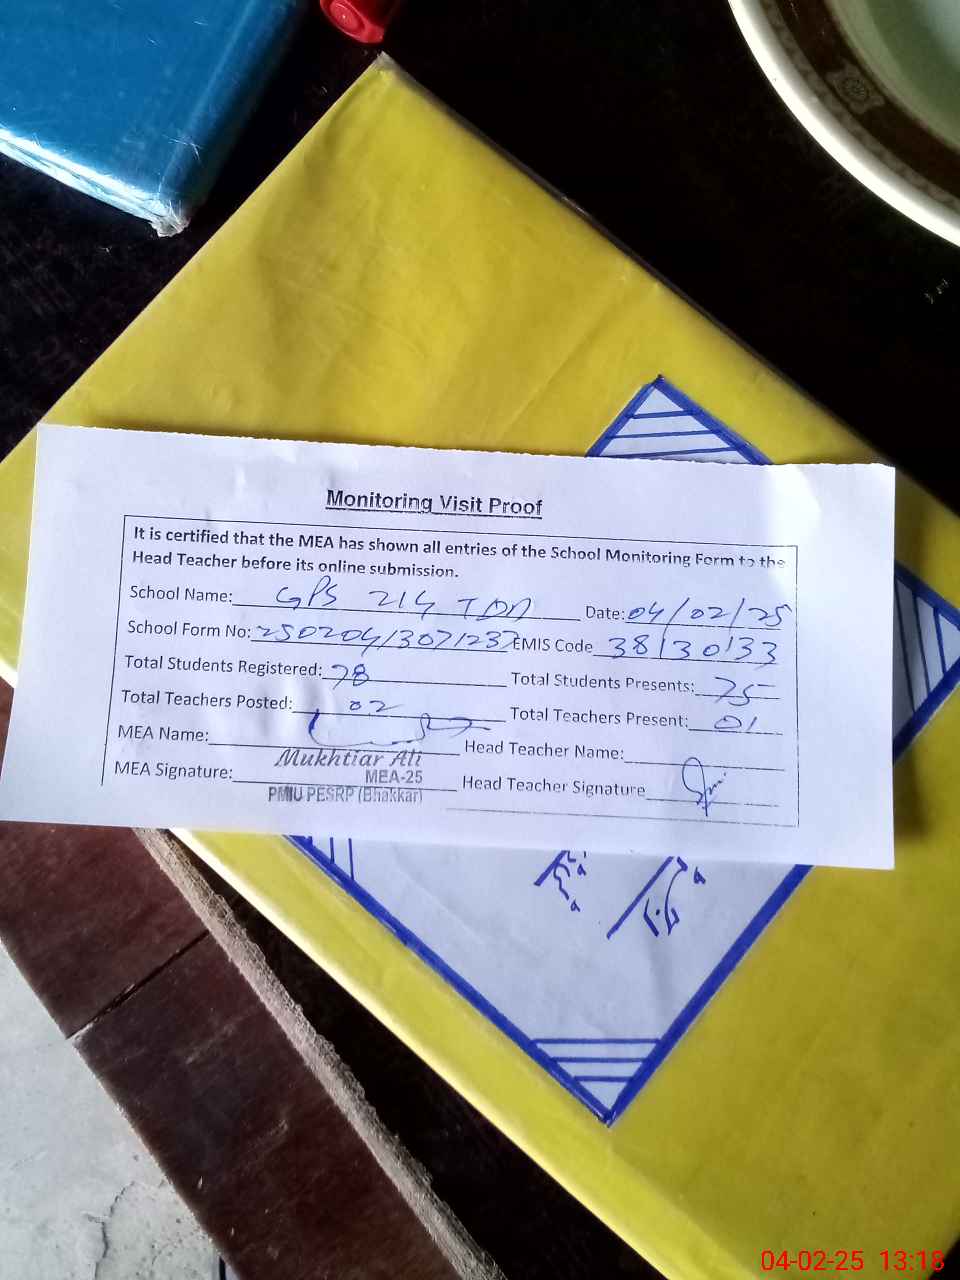 Monitoring Visit Proof
It is certified that the MEA has shown all entries of the School Monitoring Form to the
Head Teacher before its online submission.
School Name: GPS 214 TDA Date: 04/02/25
School Form No: 250204/307/237 EMIS Code 38130133
Total Students Registered: 78 Total Students Presents: 75
Total Teachers Posted: 02 Total Teachers Present: 01
MEA Name: Head Teacher Name:
Mukhtiar Ali
MEA Signature: MEA-25 Head Teacher Signature
PMIU PESRP (Bhakkar)
04-02-25 13:18